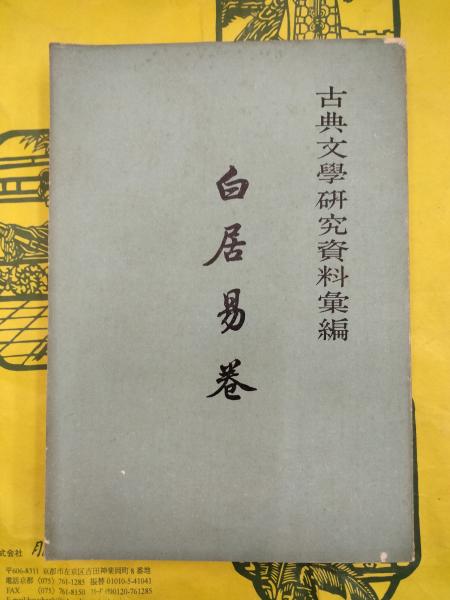 古典文學研究資料彙編
白居易卷
式会社 朋
〒606-8311 京都市左京区吉田神楽岡町8番地
電話京都 (075) 761-1285 振替 01010-5-41041
FAX (075) 761-8150 フリーダイヤル0120-761285